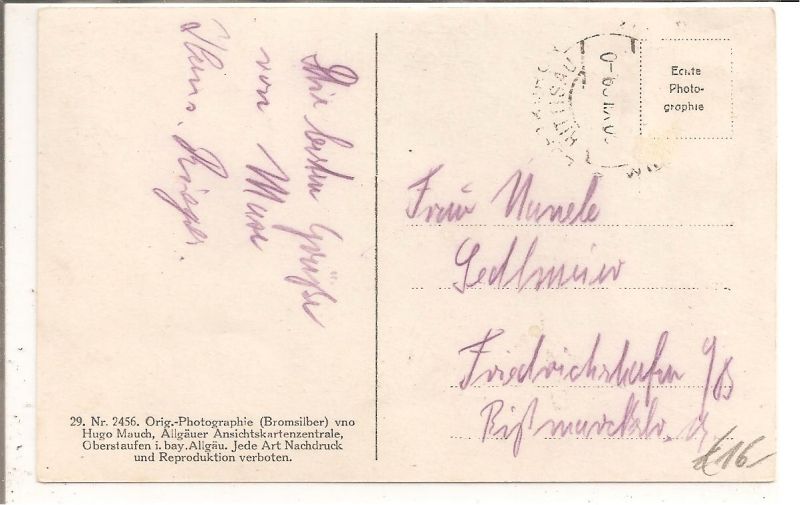 Die besten Grüße
von
Hans.
Echte
Photo-
graphie
HITTISAU
Frau
Sedlmeier
Friedrichshafen a/B
29. Nr. 2456. Orig.-Photographie (Bromsilber) vno
Hugo Mauch, Allgäuer Ansichtskartenzentrale,
Oberstaufen i. bay. Allgäu. Jede Art Nachdruck
und Reproduktion verboten.
16